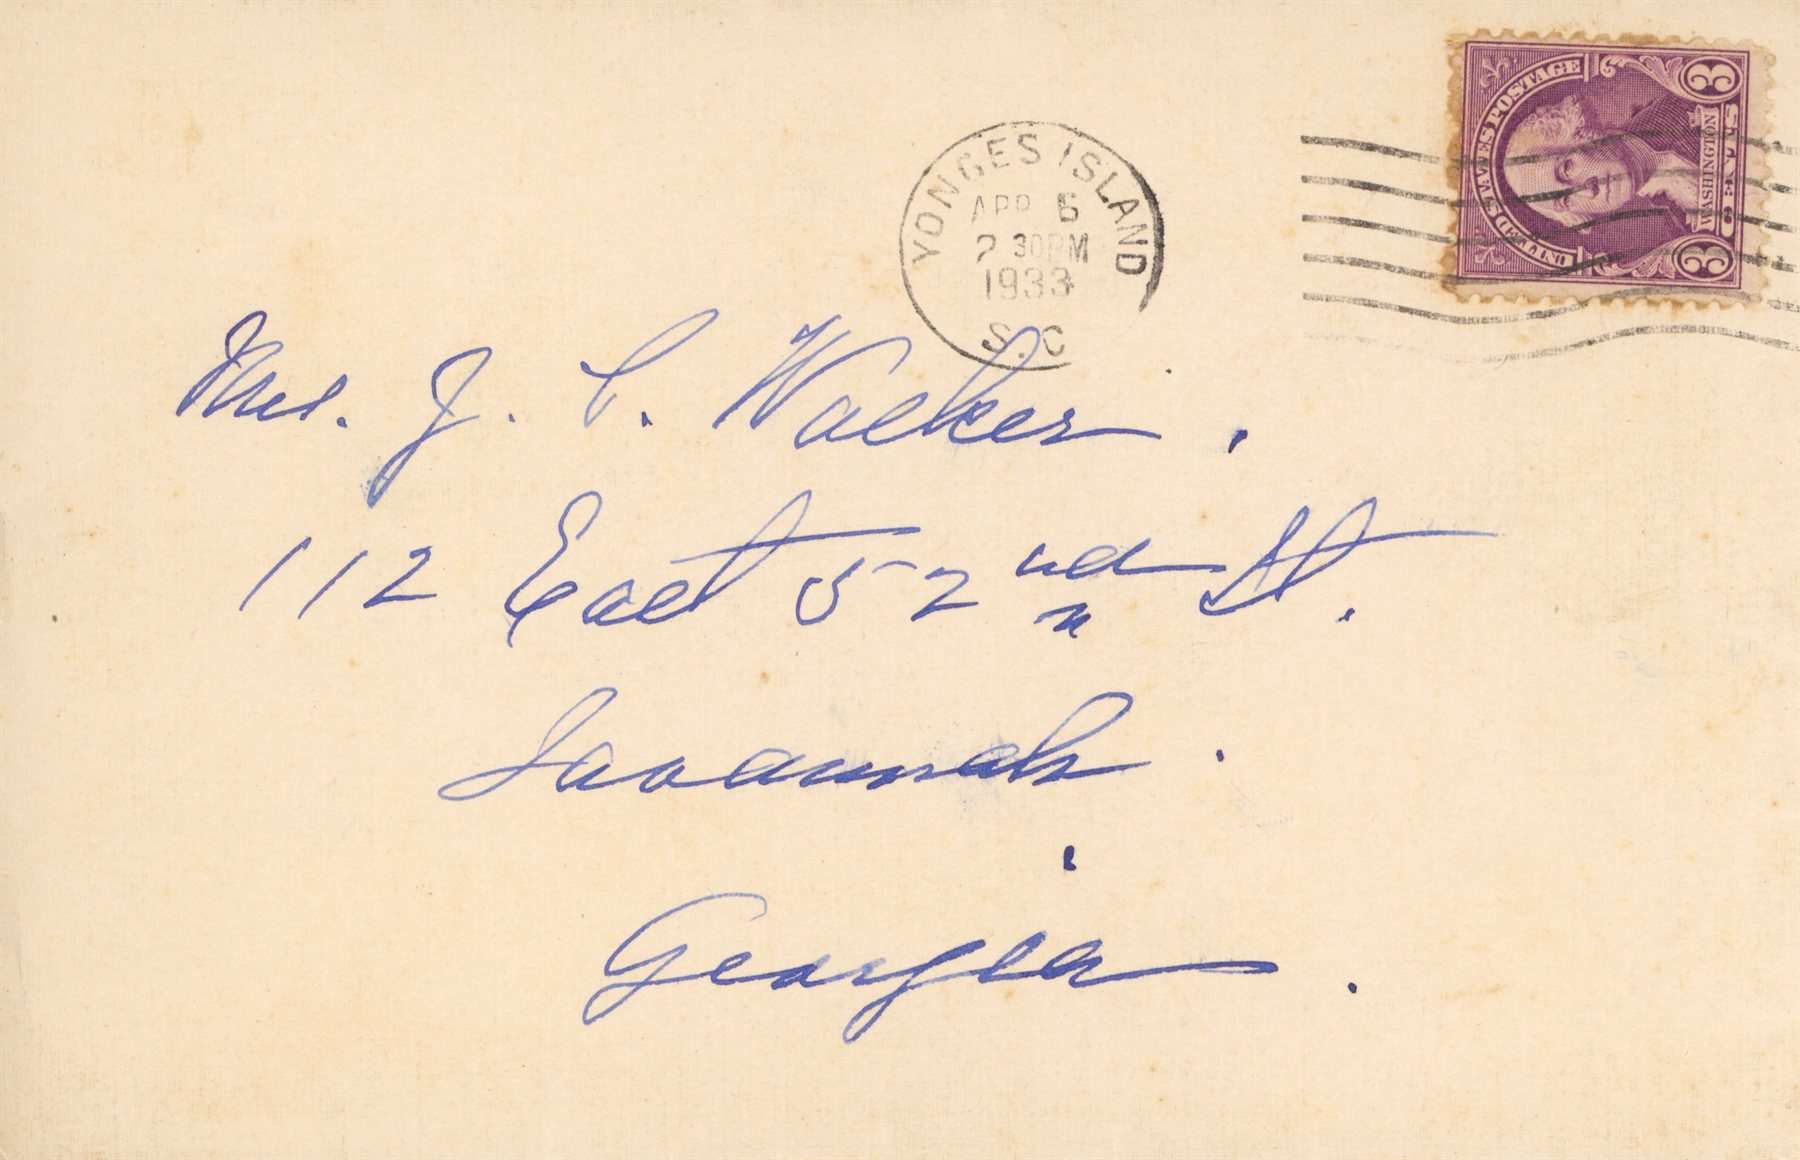 UNITED STATES POSTAGE
3 CENTS 3
WASHINGTON
YONGES ISLAND
APR 5
2 30 PM
1933
S.C
Mrs. J. C. Walker.
112 East 52nd St.
Savannah.
Georgia.